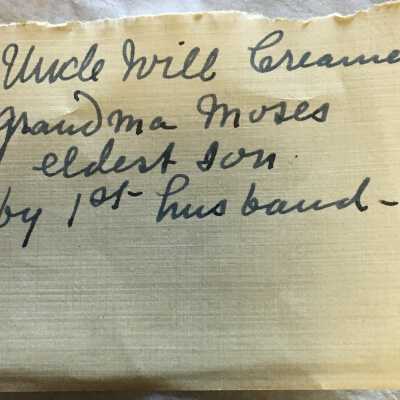 Uncle Will Creame
Grandma Moses
eldest son
by 1st husband-